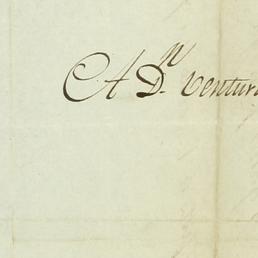 A Dn. Ventur